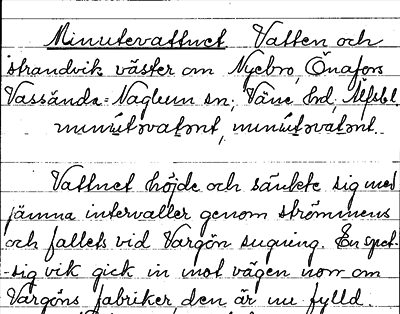 Minutevattnet Vatten och
strandvik väster om Nyebro, Önafors
Vassända-Naglum sn; Väne hd, Älfsbl.
minútəvatənt, minútəvatənt.
Vattnet höjde och sänkte sig med
jämna intervaller genom strömmens
och fallets vid Vargön sugning. En spet-
-sig vik gick in mot vägen norr om
Vargöns fabriker, den är nu fylld.